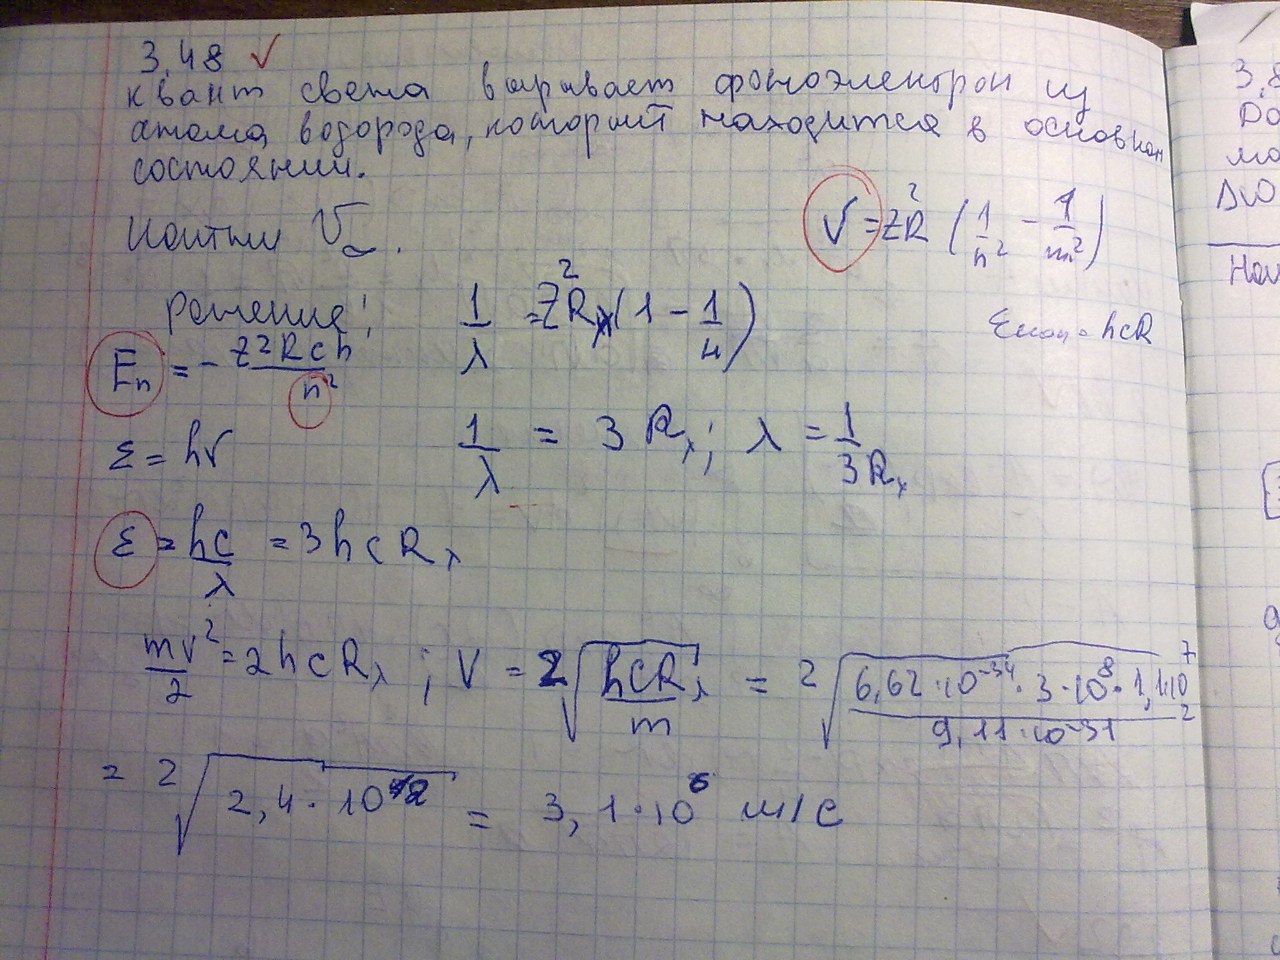 3.48 ✓
квант света вырывает фотоэлектрон из
атома водорода, который находится в основном
состоянии.
V = Z²R (1/n² − 1/m²)
Решение: 1/λ = Z²Rλ(1 − 1/4)
Eₙ = − Z²Rch/n²
= hcR
ε = hν
1/λ = 3Rλ; λ = 1/3Rλ
ε = hc/λ = 3hcRλ
mv²/2 = 2hcRλ; V = 2√(hcRλ/m) = 2√(6,62·10⁻³⁴·3·10⁸·1,1·10⁷/9,11·10⁻³¹)
= 2√(2,4·10¹²) = 3,1·10⁶ м/с
3,
До